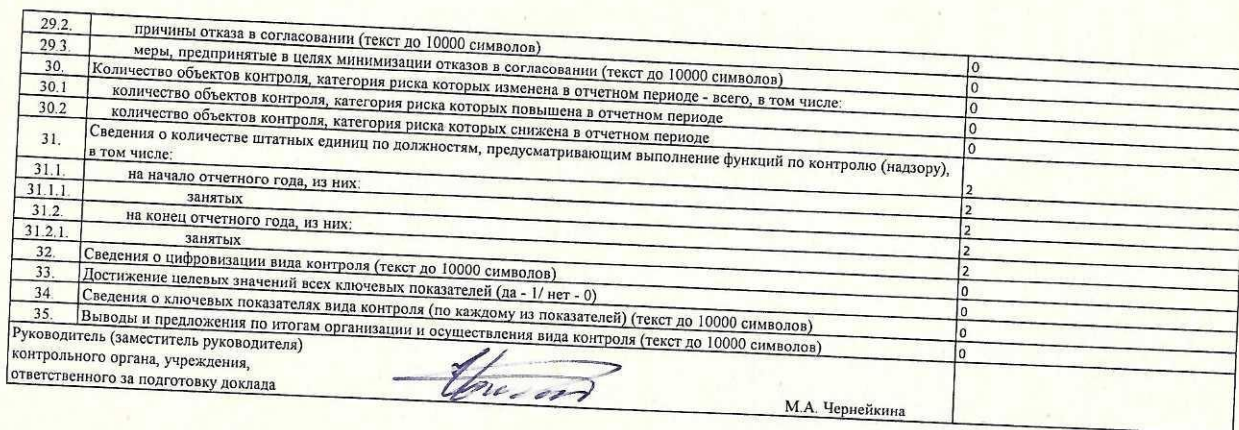 29.2. причины отказа в согласовании (текст до 10000 символов) 0
29.3. меры, предпринятые в целях минимизации отказов в согласовании (текст до 10000 символов) 0
30. Количество объектов контроля, категория риска которых изменена в отчетном периоде - всего, в том числе: 0
30.1 количество объектов контроля, категория риска которых повышена в отчетном периоде 0
30.2 количество объектов контроля, категория риска которых снижена в отчетном периоде 0
31. Сведения о количестве штатных единиц по должностям, предусматривающим выполнение функций по контролю (надзору),
в том числе: 2
31.1. на начало отчетного года, из них: 2
31.1.1. занятых 2
31.2. на конец отчетного года, из них: 2
31.2.1. занятых 2
32. Сведения о цифровизации вида контроля (текст до 10000 символов) 0
33. Достижение целевых значений всех ключевых показателей (да - 1/ нет - 0) 0
34. Сведения о ключевых показателях вида контроля (по каждому из показателей) (текст до 10000 символов) 0
35. Выводы и предложения по итогам организации и осуществления вида контроля (текст до 10000 символов) 0
Руководитель (заместитель руководителя)
контрольного органа, учреждения,
ответственного за подготовку доклада М.А. Чернейкина